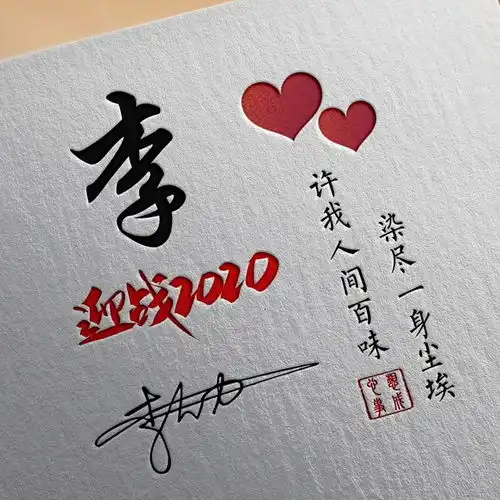 李
迎战2020
许我人间百味
染尽一身尘埃
心想事成